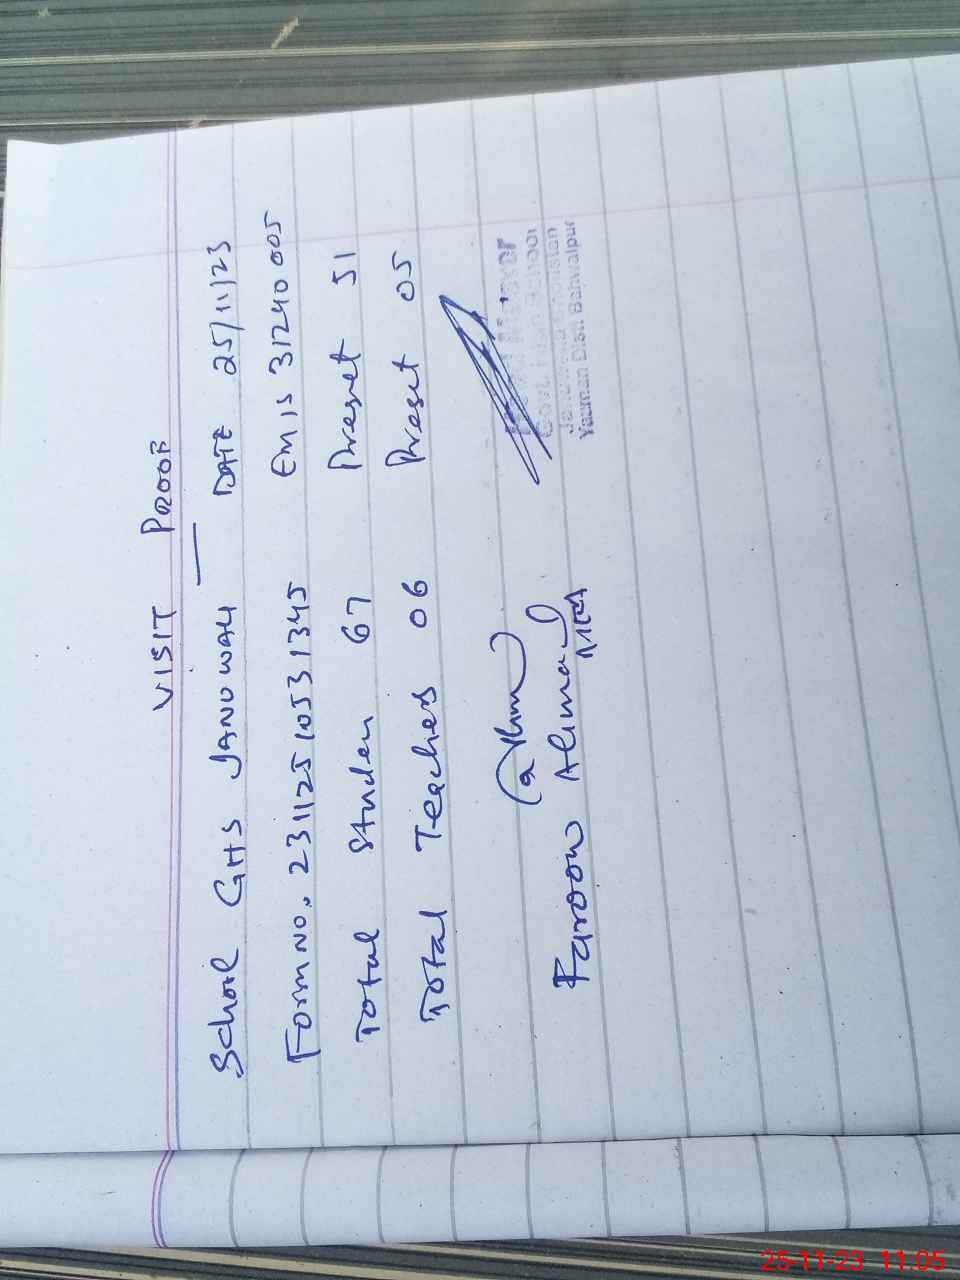 VISIT PROOF
School GHS JANUWALI DATE 25/11/23
Form No. 23112510531345 EMIS 31240005
Total Studen 67 Preset 51
Total Teachers 06 Preset 05
Farooq Ahmad
MEA
Govt. High School
Yazman Distt Bahwalpur
25-11-23 11.05